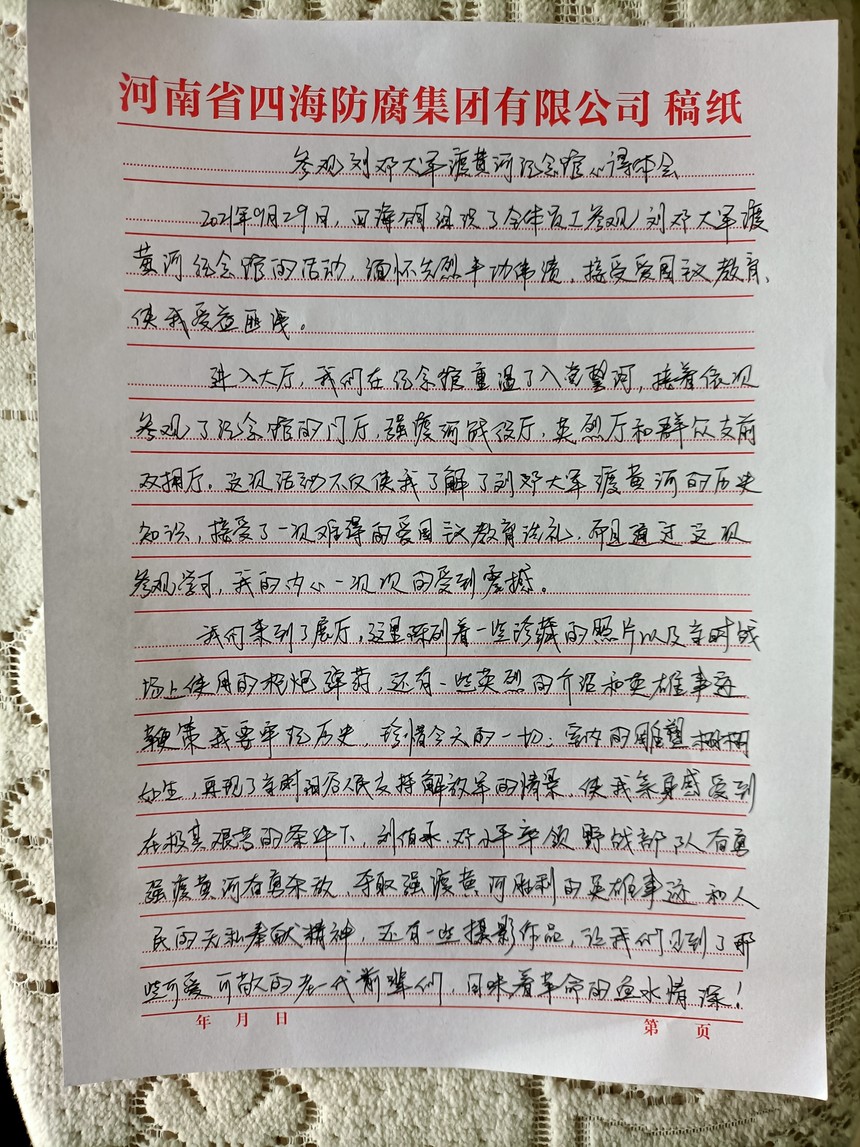 河南省四海防腐集团有限公司 稿纸
参观刘邓大军渡黄河纪念馆心得体会
2021年9月29日，四海公司组织了全体员工参观刘邓大军渡
黄河纪念馆的活动，缅怀先烈丰功伟绩，接受爱国主义教育，
使我受益匪浅。
进入大厅，我们在纪念馆重温了入党誓词，接着依次
参观了纪念馆的门厅，强渡河战役厅，英烈厅和群众支前
双拥厅。这次活动不仅使我了解了刘邓大军渡黄河的历史
知识，接受了一次难得的爱国主义教育洗礼，而且通过这次
参观学习，我的内心一次次的受到震撼。
我们来到了展厅，这里陈列着一些珍藏的照片以及当时战
场上使用的枪炮弹药，还有一些英烈的介绍和英雄事迹
鞭策我要牢记历史，珍惜今天的一切；室内的雕塑栩栩
如生，再现了当时阳谷人民支持解放军的情景，使我亲身感受到
在极其艰苦的条件下，刘伯承、邓小平率领野战部队有勇
强渡黄河有勇杀敌，夺取强渡黄河胜利的英雄事迹和人
民的无私奉献精神，还有一些摄影作品，让我们见到了那
些可爱可敬的老一代前辈们，回味着革命的鱼水情深！
年 月 日
第 页